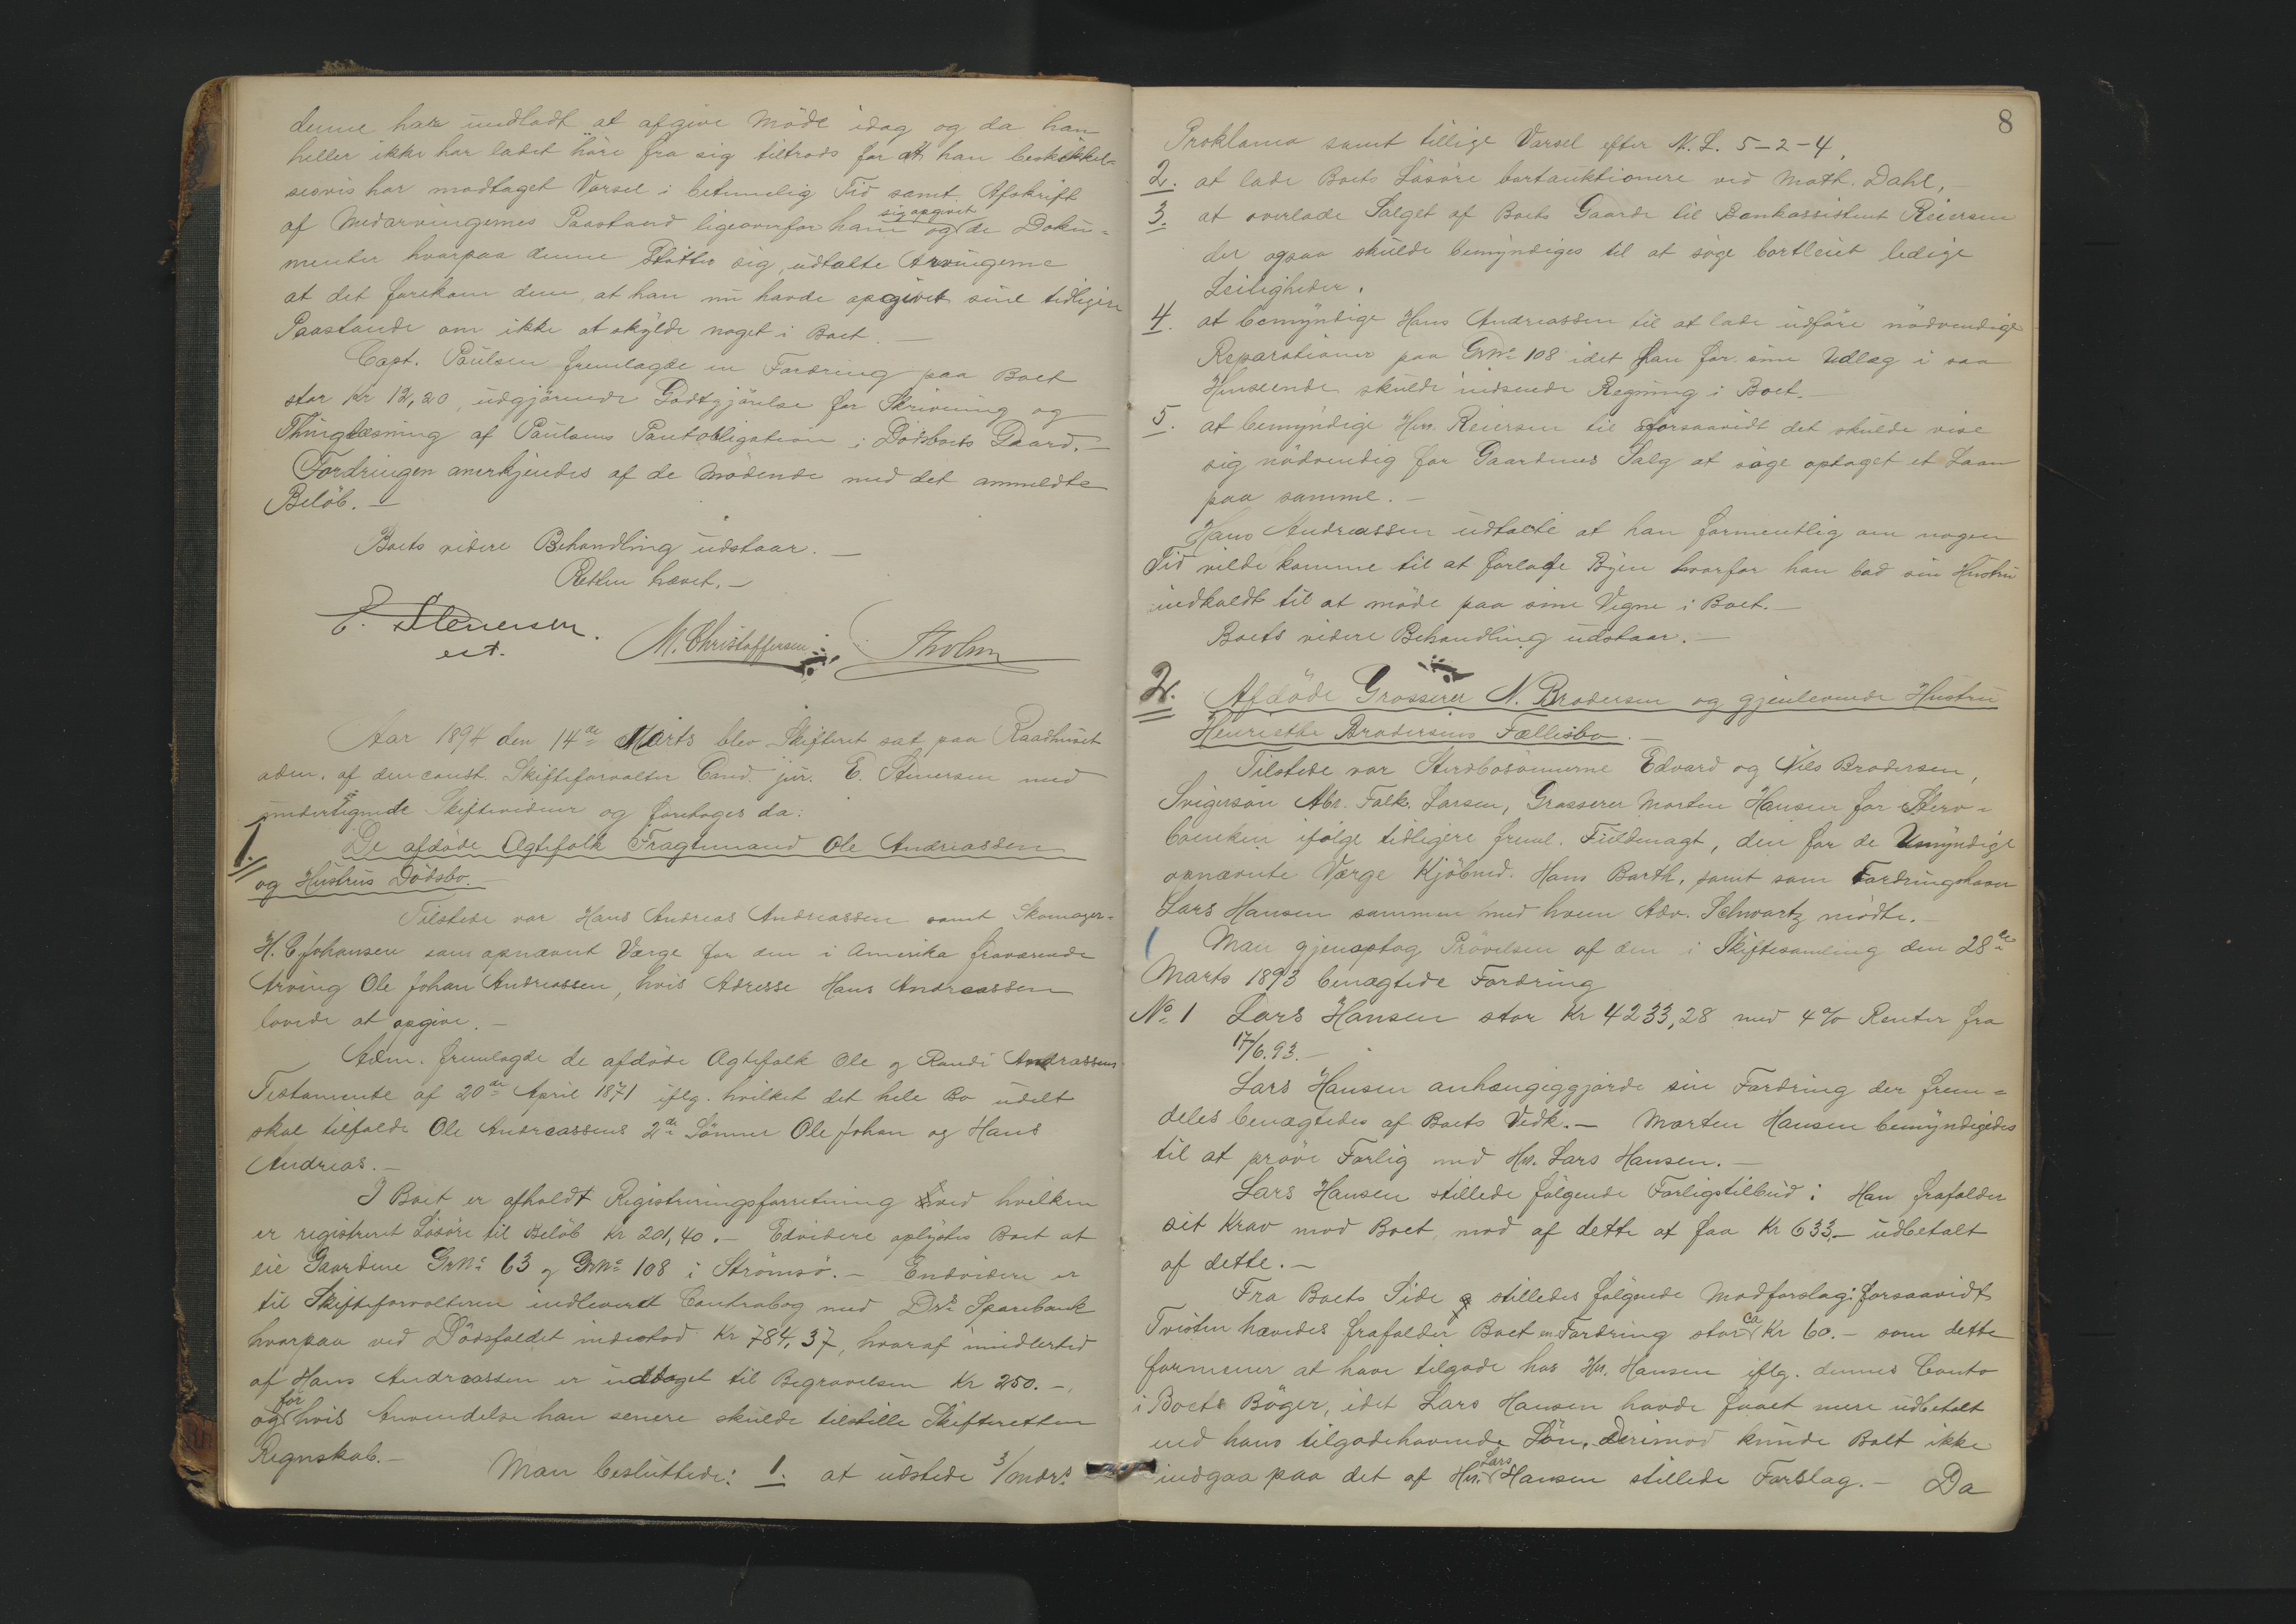 denne har undladt at afgive Möde idag og da han
heller ikke har ladet höre fra sig tiltrods for at han beskikkel-
sesvis har modtaget Varsel i betimelig Tid samt Afskrift
sig opgivet
af Medarvingernes Paastand ligeoverfor ham og de Doku-
menter hvorpaa denne Stötter sig, udtalte Arvingerne
at det forekom dem, at han nu havde opgivet sine tidligere
Paastande om ikke at skylde noget i Boet. —
Capt. Paulsen fremlagde en Fordring paa Boet
stor Kr 12,20, udgjörende Godtgjörelse for Skrivning og
Thinglæsning af Paulsens Pantobligation i Dödsboets Gaard. —
Fordringen anerkjendes af de Mödende med det anmeldte
Belöb. —
Boets videre Behandling udstaar. —
Retten hævet. —
E. Stenersen.
cst.
M. Christoffersen
Tholm
Aar 1894 den 14de Marts blev Skifteret sat paa Raadhuset
adm. af den const. Skifteforvalter Cand. jur. E. Stenersen med
undertegnede Skiftevidner og foretoges da:
1.
De afdöde Ægtefolk Fragtmand Ole Andreassen
og Hustrus Dödsbo. —
Tilstede var Hans Andreas Andreassen samt Skomager-
H. C. Johansen som opnævnt Værge for den i Amerika fraværende
Arving Ole Johan Andreassen, hvis Adresse Hans Andreassen
lovede at opgive. —
Adm. fremlagde de afdöde Ægtefolk Ole og Randi Andreassens
Testamente af 20de April 1871 iflg. hvilket det hele Bo udelt
skal tilfalde Ole Andreassens 2de Sönner Ole Johan og Hans
Andreas. —
I Boet er afholdt Registreringsforretning ved hvilken
er registreret Lösöre til Belöb Kr 201,40. — Endvidere oplystes Boet at
eie Gaardene GrNo 63 og GrNo 108 i Strömsö. — Endvidere er
til Skifteforvalteren indleveret Contrabog med Drs Sparebank
hvorpaa ved Dödsfaldet indestod Kr 784,37, hvoraf imidlertid
af Hans Andreassen er udtaget til Begravelsen Kr 250. —,
for
og hvis Anvendelse han senere skulde tilstille Skifteretten
Regnskab. —
Man besluttede: 1. at udstede 3/mdrs
8
Proklama samt tillige Varsel efter N. L. 5-2-4,
2. at lade Boets Lösöre bortauktionere ved Math. Dahl, —
3. at overlade Salget af Boets Gaarde til Bankassistent Reiersen
der ogsaa skulde bemyndiges til at söge bortleiet ledige
Leiligheder.
4. at bemyndige Hans Andreassen til at lade udföre nödvendige
Reparationer paa GrNo 108 idet han for sine Udlæg i saa
Henseende skulde indsende Regning i Boet. —
5. at bemyndige Hrr. Reiersen til forsaavidt det skulde vise
sig nödvendig for Gaardenes Salg at söge optaget et Laan
paa samme. —
Hans Andreassen udtalte at han formentlig om nogen
Tid vilde komme til at forlade Byen hvorfor han bad sin Hustru
indkaldt til at möde paa sine Vegne i Boet. —
Boets videre Behandling udstaar. —
2.
Afdöde Grosserer N. Brodersen og gjenlevende Hustru
Henriette Brodersens Fællesbo. —
Tilstede var Stervbosönnerne Edvard og Nils Brodersen,
Svigersön Abr. Falk. Larsen, Grosserer Morten Hansen for Sterv-
boenken ifölge tidligere freml. Fuldmagt, den for de Umyndige
opnævnte Værge Kjöbmd. Hans Barth, samt som Fordringshaver
Lars Hansen sammen med hvem Adv. Schwartz mödte. —
Man gjenoptog Prövelsen af den i Skiftesamling den 28de
Marts 1893 benægtede Fordring
No 1 Lars Hansen stor Kr 4233,28 med 4% Renter fra
17/6.93. —
Lars Hansen anhængiggjorde sin Fordring der frem-
deles benægtedes af Boets Vedk. — Morten Hansen bemyndigedes
til at pröve Forlig med Hr. Lars Hansen. —
Lars Hansen stillede fölgende Forligstilbud: Han frafalder
sit Krav mod Boet, mod af dette at faa Kr 633,— udbetalt
af dette. —
Fra Boets Side stilledes fölgende Modforslag: forsaavidt
ca
Tvisten hævedes frafalder Boet en Fordring stor Kr 60. — som dette
formener at have tilgode hos Hr. Hansen iflg. dennes Conto
i Boets Böger, idet Lars Hansen havde faaet mere udbetalt
end hans tilgodehavende Lön. Derimod kunde Boet ikke
Lars
indgaa paa det af Hr. Hansen stillede Forslag. — Da